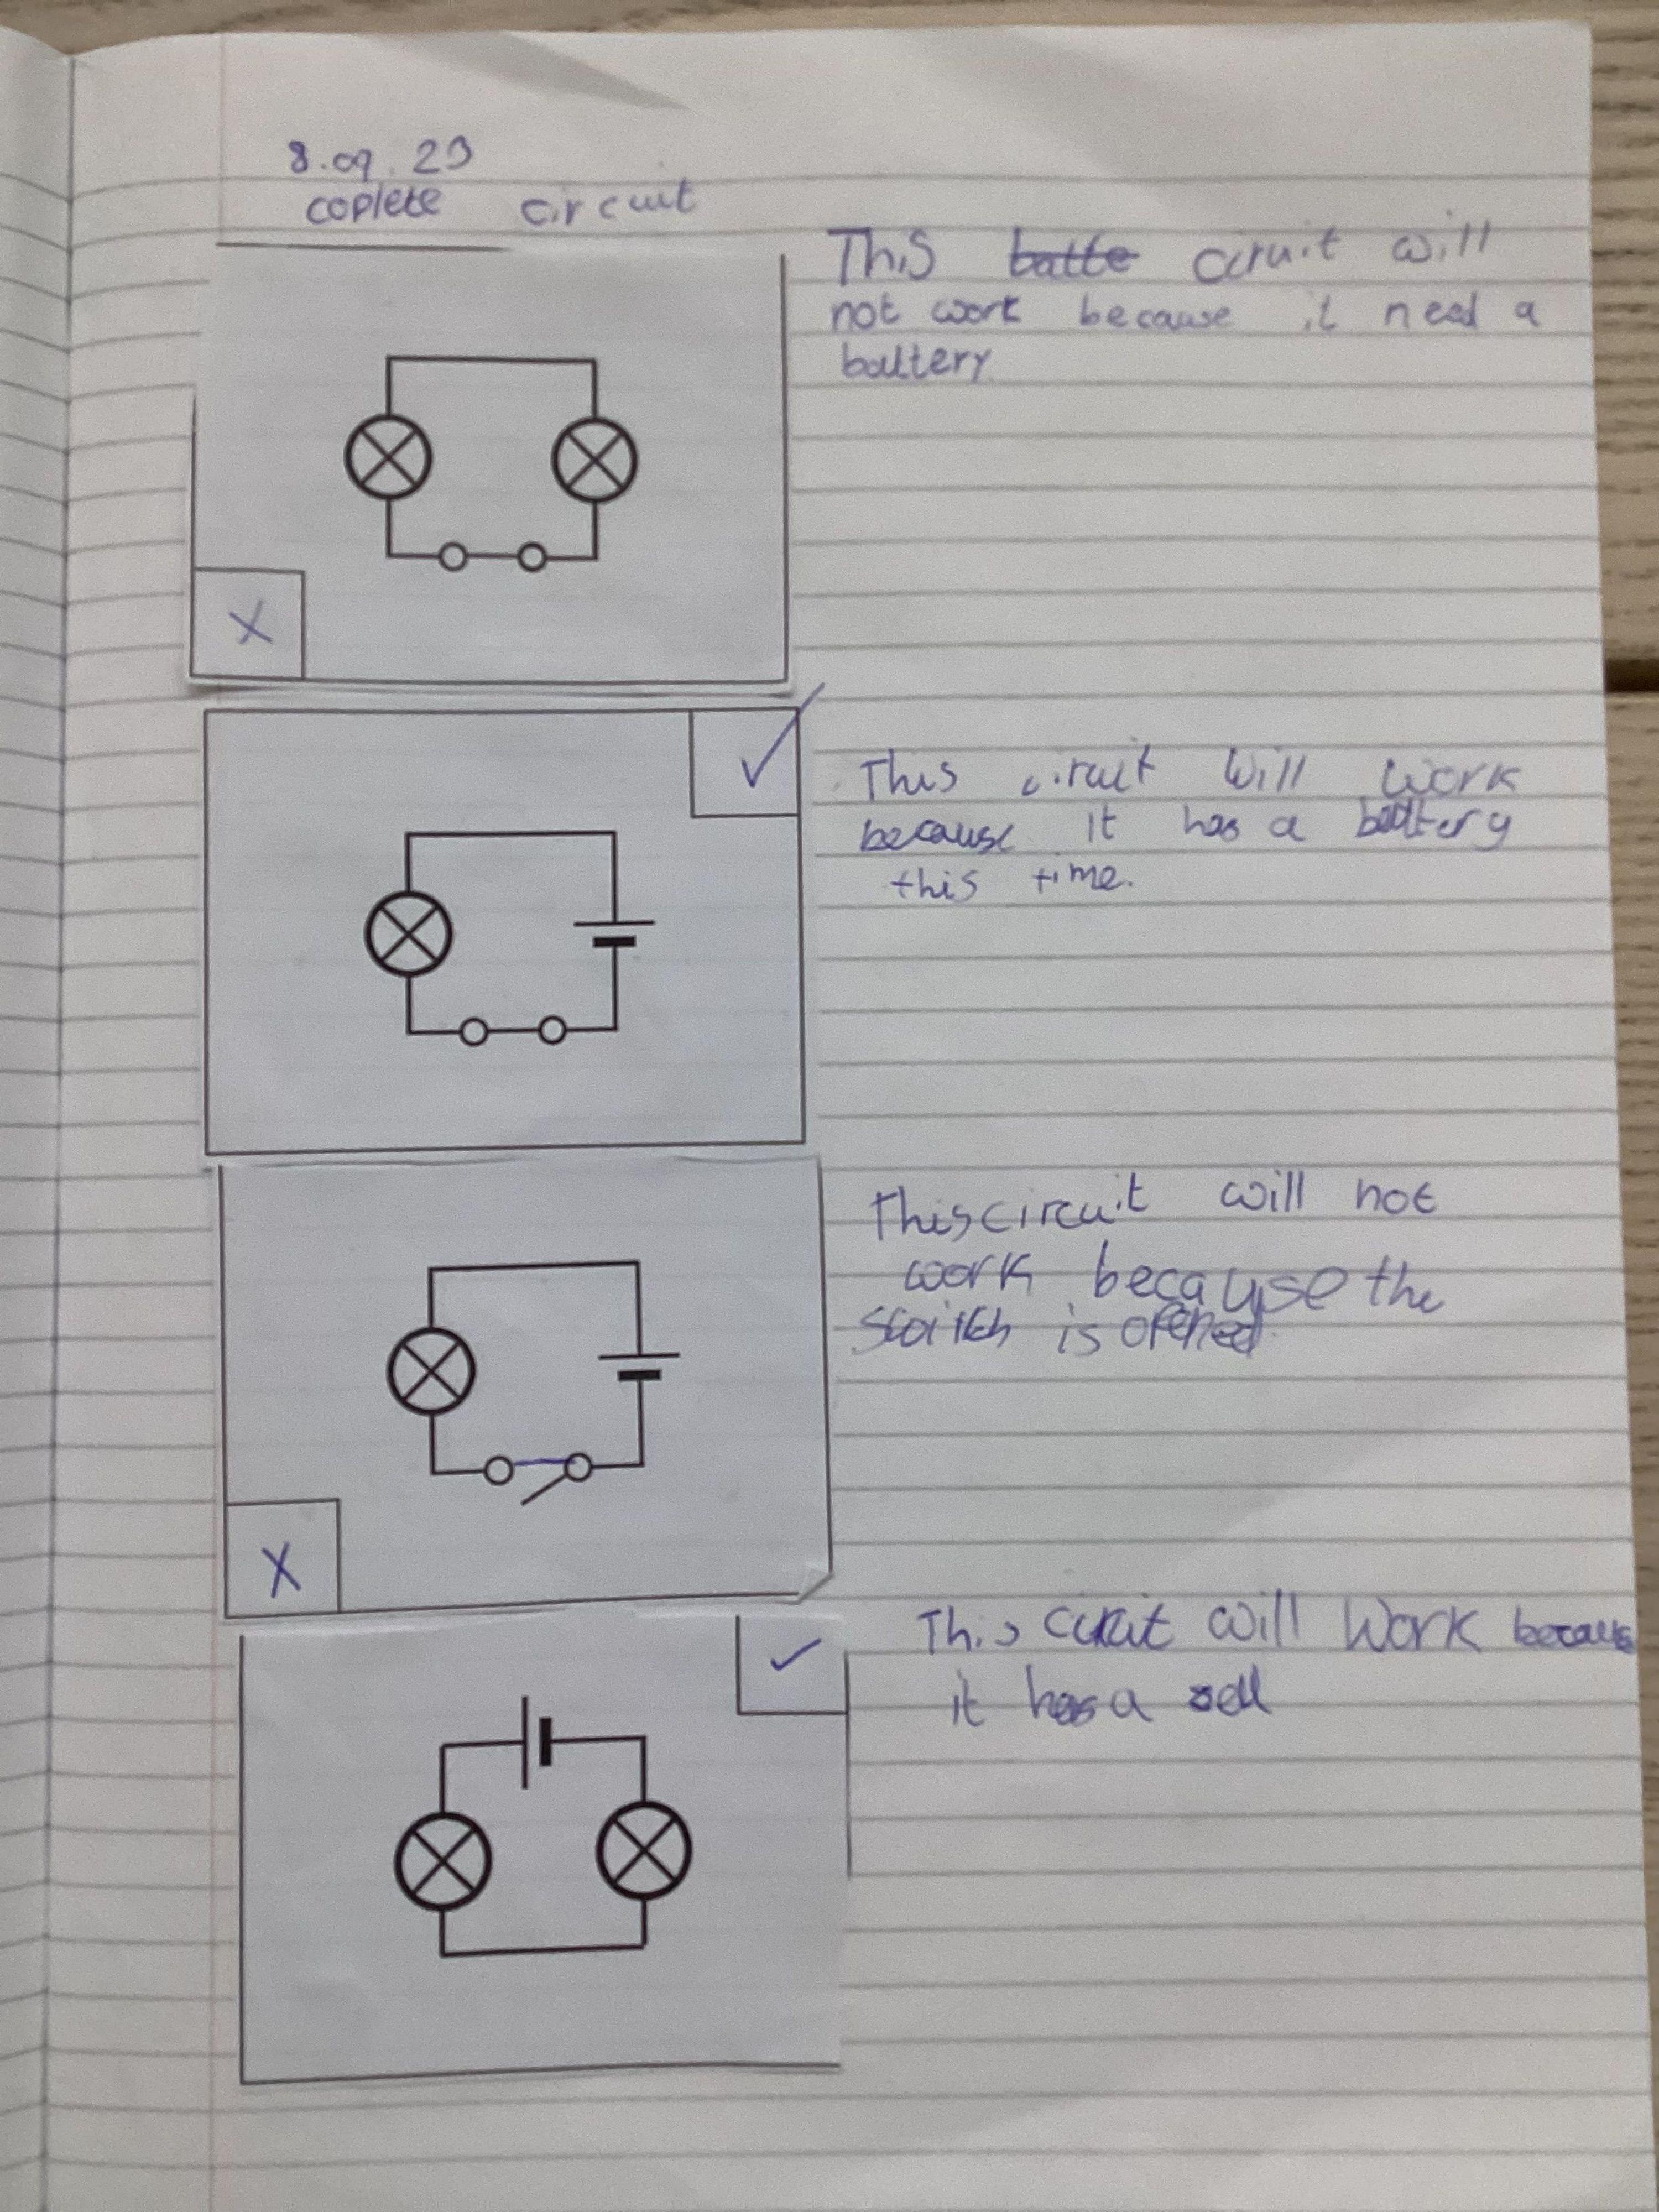 8.09.23
coplete circuit
This batte ciruit will
not work because it need a
battery
X
✓
This ciruit will work
because it has a battery
this time.
This circuit will not
work because the
switch is opened.
X
✓
This ciruit will work because
it has a cell